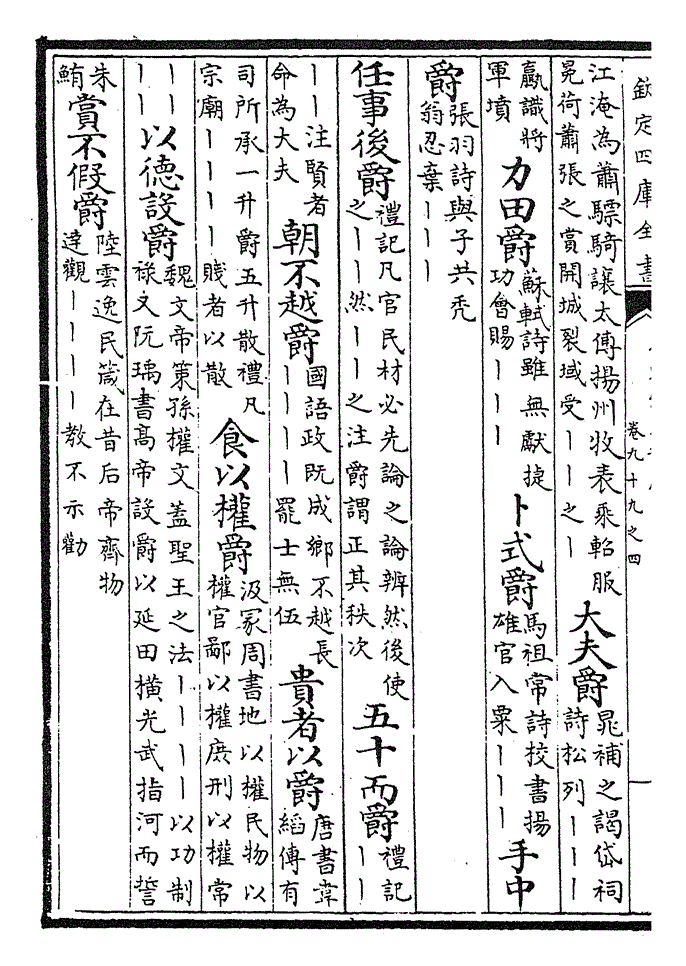 欽定四庫全書
卷九十九之四
江淹為蕭驃騎讓太傅揚州牧表乘軺服
冕荷蕭張之賞開城裂域受丨丨之丨
大夫爵
晁補之謁岱祠
詩松列丨丨丨
嬴識將
軍墳
力田爵
蘇軾詩雖無獻捷
功會賜丨丨丨
卜式爵
馬祖常詩校書揚
雄官入粟丨丨丨
手中
爵
張羽詩與子共禿
翁忍棄丨丨丨
任事後爵
禮記凡官民材必先論之論辨然後使
之丨丨然丨丨之注爵謂正其秩次
五十而爵
禮記
丨丨
丨丨注賢者
命為大夫
朝不越爵
國語政既成鄉不越長
丨丨丨丨罷士無伍
貴者以爵
唐書韋
縚傳有
司所承一升爵五升散禮凡
宗廟丨丨丨丨賤者以散
食以權爵
汲冢周書地以權民物以
權官鄙以權庶刑以權常
丨丨
丨丨
以德設爵
魏文帝策孫權文蓋聖王之法丨丨丨丨以功制
祿又阮瑀書高帝設爵以延田橫光武指河而誓
朱
鮪
賞不假爵
陸雲逸民箴在昔后帝齊物
達觀丨丨丨丨教不示勸